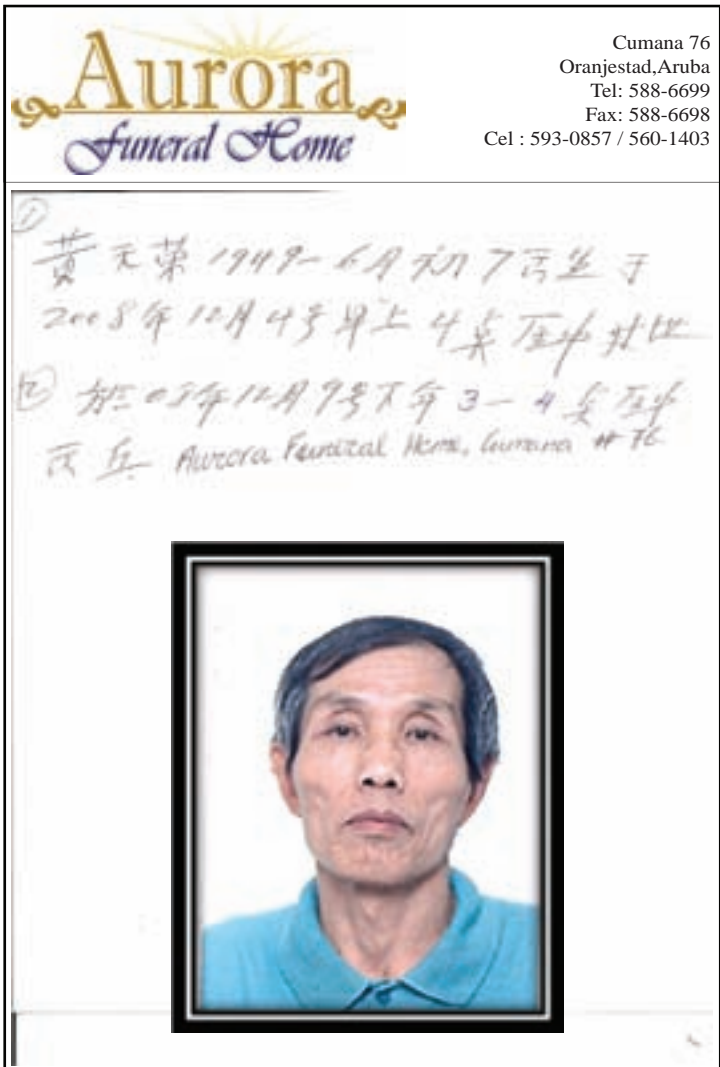 Aurora
Funeral Home
Cumana 76
Oranjestad,Aruba
Tel: 588-6699
Fax: 588-6698
Cel : 593-0857 / 560-1403
①
黄天荣 1949- 6月初7 生于
2008年12月4号早上4点 去世
② 於08年12月9号下午3-4点
Aurora Funeral Home, Cumana # 76